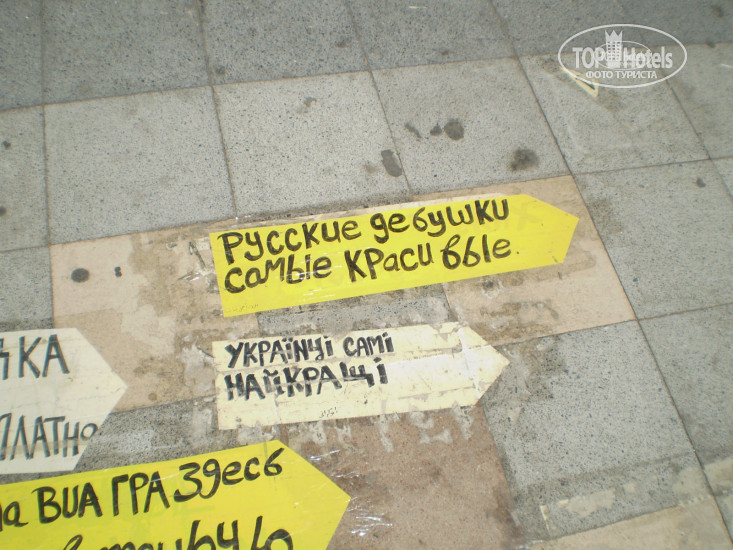 TOP Hotels
ФОТО ТУРИСТА
РУССКИЕ дЕбУШКИ
САМЫЕ КРАСИВЫЕ.
УКРАЇНЦІ САМІ
НАЙКРАЩІ
КА
ПЛАТНО
ВИА ГРА ЗдЕСЬ